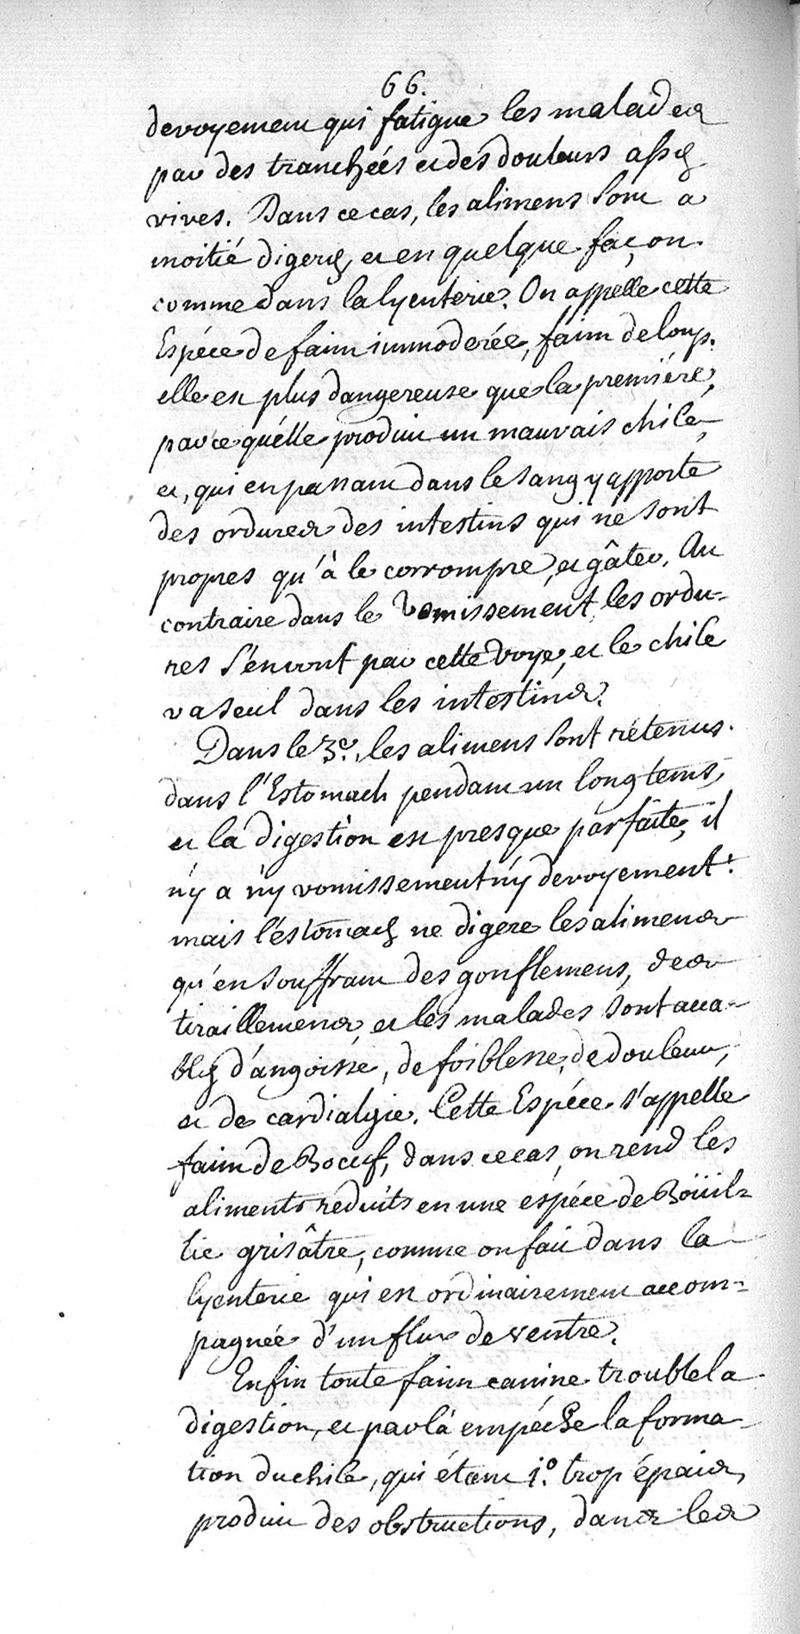 66.
devoyement qui fatigue les malades
par des tranchées et des douleurs assés
vives. Dans ce cas, les alimens sont a
moitié digerés, et en quelque façon
comme dans la lyenterie. On appelle cette
Espéce de faim immoderée, faim de loup.
elle est plus dangereuse que la premiére,
parce qu'élle produit un mauvais chile,
et, qui en passant dans le sang y apporte
des ordures des intestins qui ne sont
propres qu'à le corrompre, et gâter. Au
contraire dans le Vomissement, les ordu-
res s'en vont par cette voye, et le chile
va seul dans les intestins.
Dans le 3e., les alimens sont rétenus
dans l'Estomach pendant un long tems,
et la digestion est presque parfaite, il
n'y a n'y vomissement n'y devoyement:
mais l'éstomach ne digere les alimens
qu'en souffrant des gonflemens, des
tiraillemens, et les malades sont acca-
blés d'angoisse, de foiblesse, de douleur,
et de cardialgie. Cette Espéce s'appelle
faim de Boeuf, dans ce cas, on rend les
aliments reduits en une éspéce de Boüil-
lie grisâtre, comme on fait dans la
lyenterie qui est ordinairement accom-
pagnée d'un flux de ventre.
Enfin toute faim canine trouble la
digestion, et par là empéche la forma-
tion du chile, qui étant 1.o trop épais,
produit des obstructions, dans les